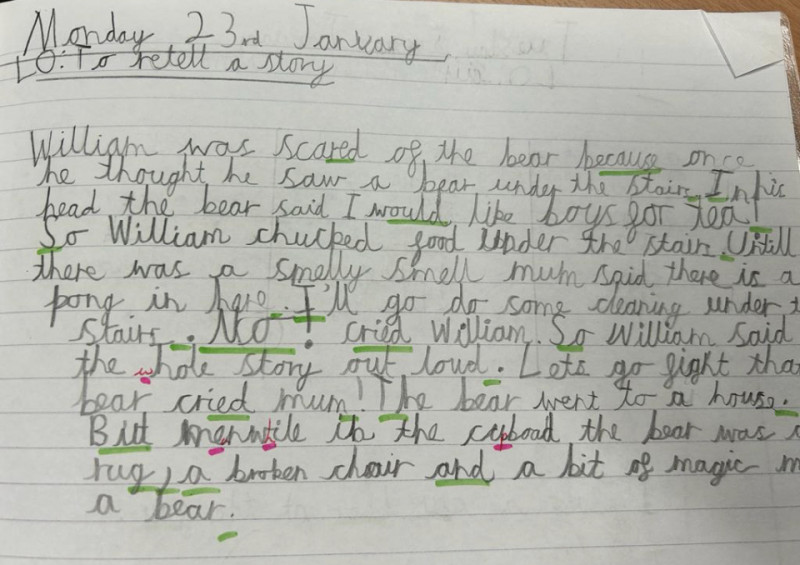 Monday 23rd January
LO: To retell a story
William was scared of the bear because once
he thought he saw a bear under the stairs. In his
head the bear said I would like boys for tea!
So William chucked food under the stairs. Untill
there was a smelly smell mum said there is a
pong in here. I'll go do some cleaning under
stairs. No! cried William. So William said
the whole story out loud. Lets go fight tha
bear cried mum! The bear went to a house.
But menwtile in the cupboad the bear was
rug, a broken chair and a bit of magic m
a bear.